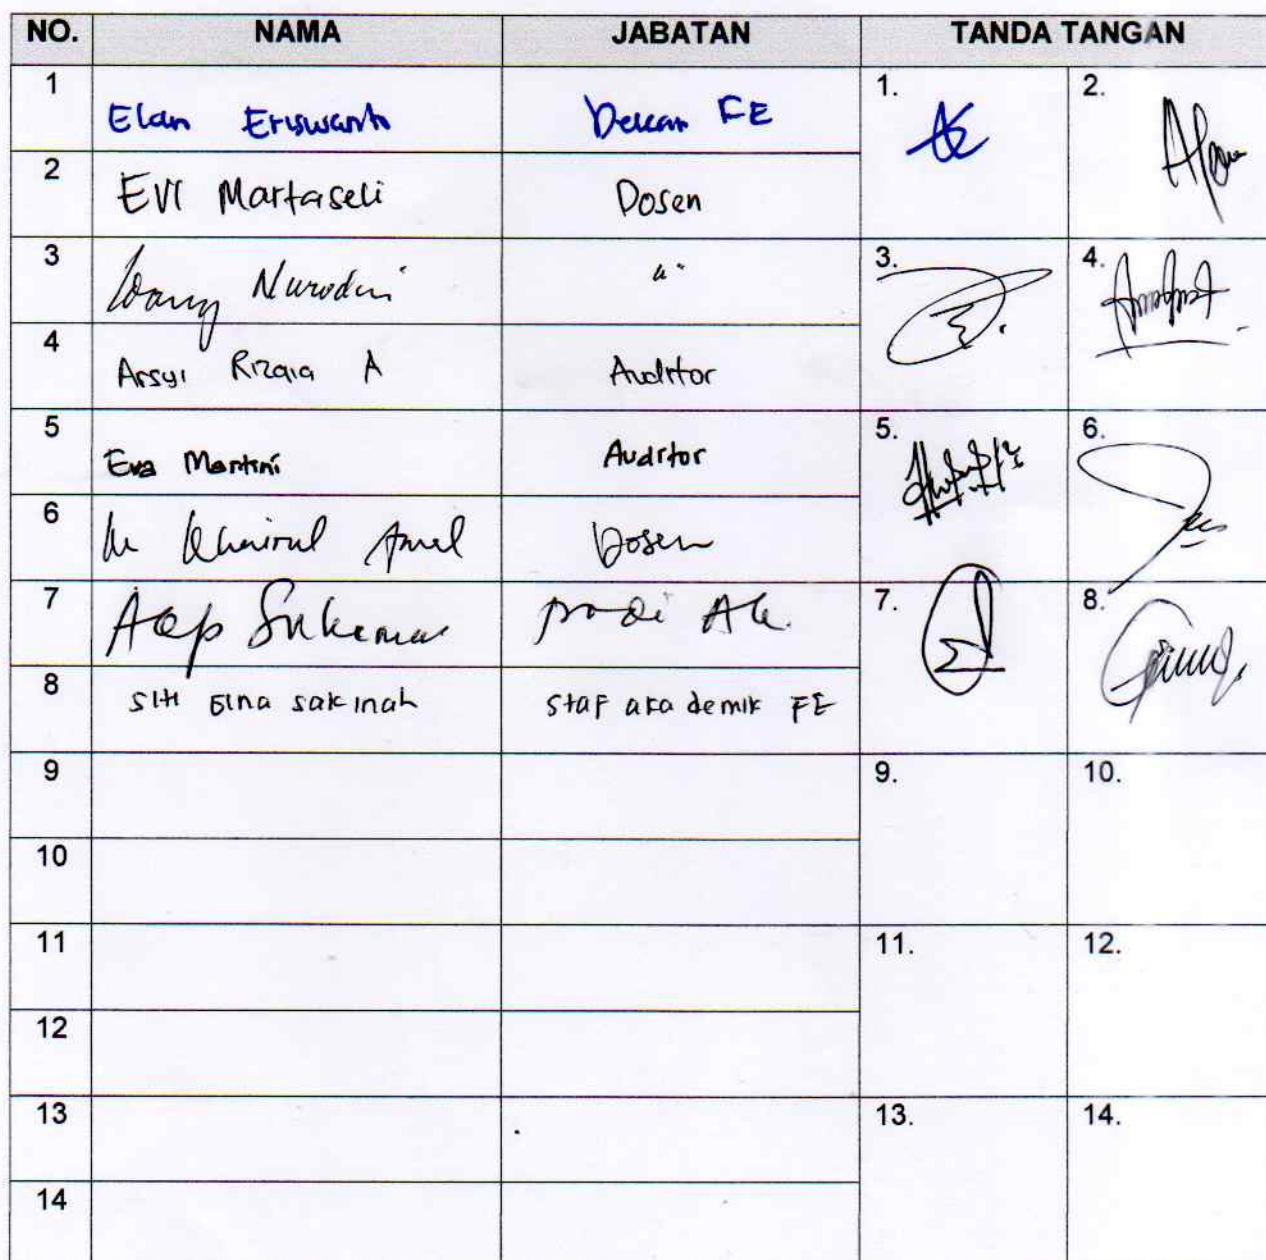 NO. NAMA JABATAN TANDA TANGAN
1 Elan Eriswanto Dekan FE 1. 2.
2 EVI Martaseli Dosen
3 Nurodin " 3. 4.
4 Arsyi Rizqia A Auditor
5 Eva Martini Auditor 5. 6.
6 M Khairul Amal Dosen
7 Acep Suherman prodi Ak. 7. 8.
8 siti Elna sakinah staf akademik FE
9 9. 10.
10
11 11. 12.
12
13 13. 14.
14